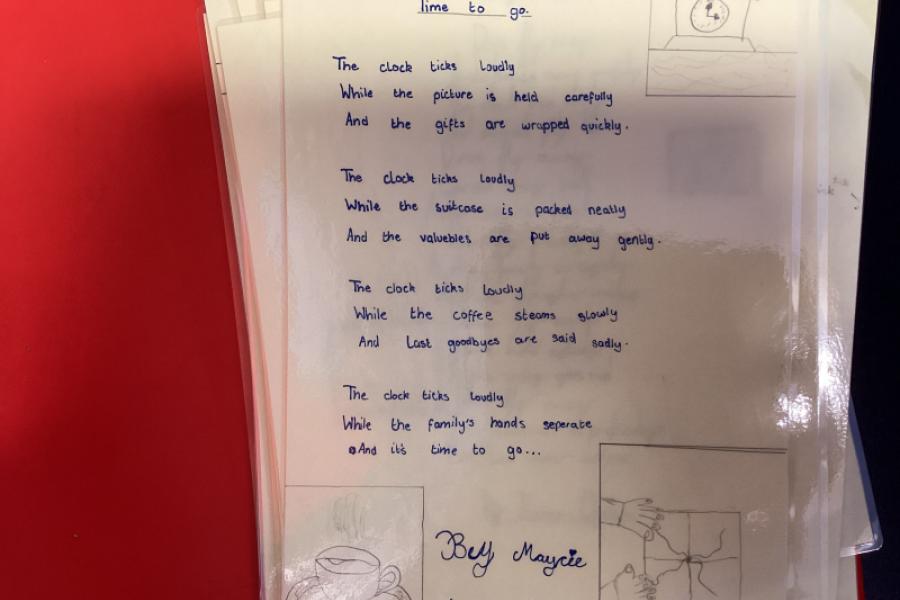 Time to go.
The clock ticks loudly
While the picture is held carefully
And the gifts are wrapped quickly.
The clock ticks loudly
While the suitcase is packed neatly
And the valuebles are put away gently.
The clock ticks loudly
While the coffee steams slowly
And Last goodbyes are said sadly.
The clock ticks loudly
While the family's hands seperate
And it's time to go...
By Maycie